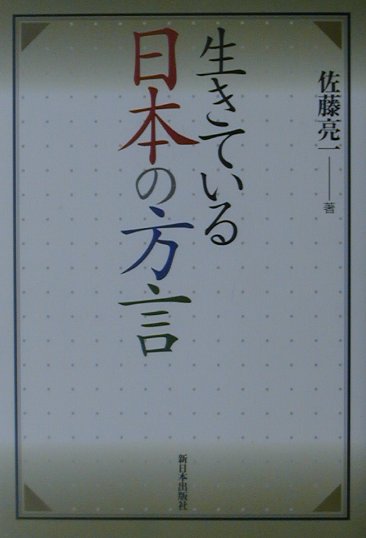 生きている
日本の方言
佐藤亮一――著
新日本出版社